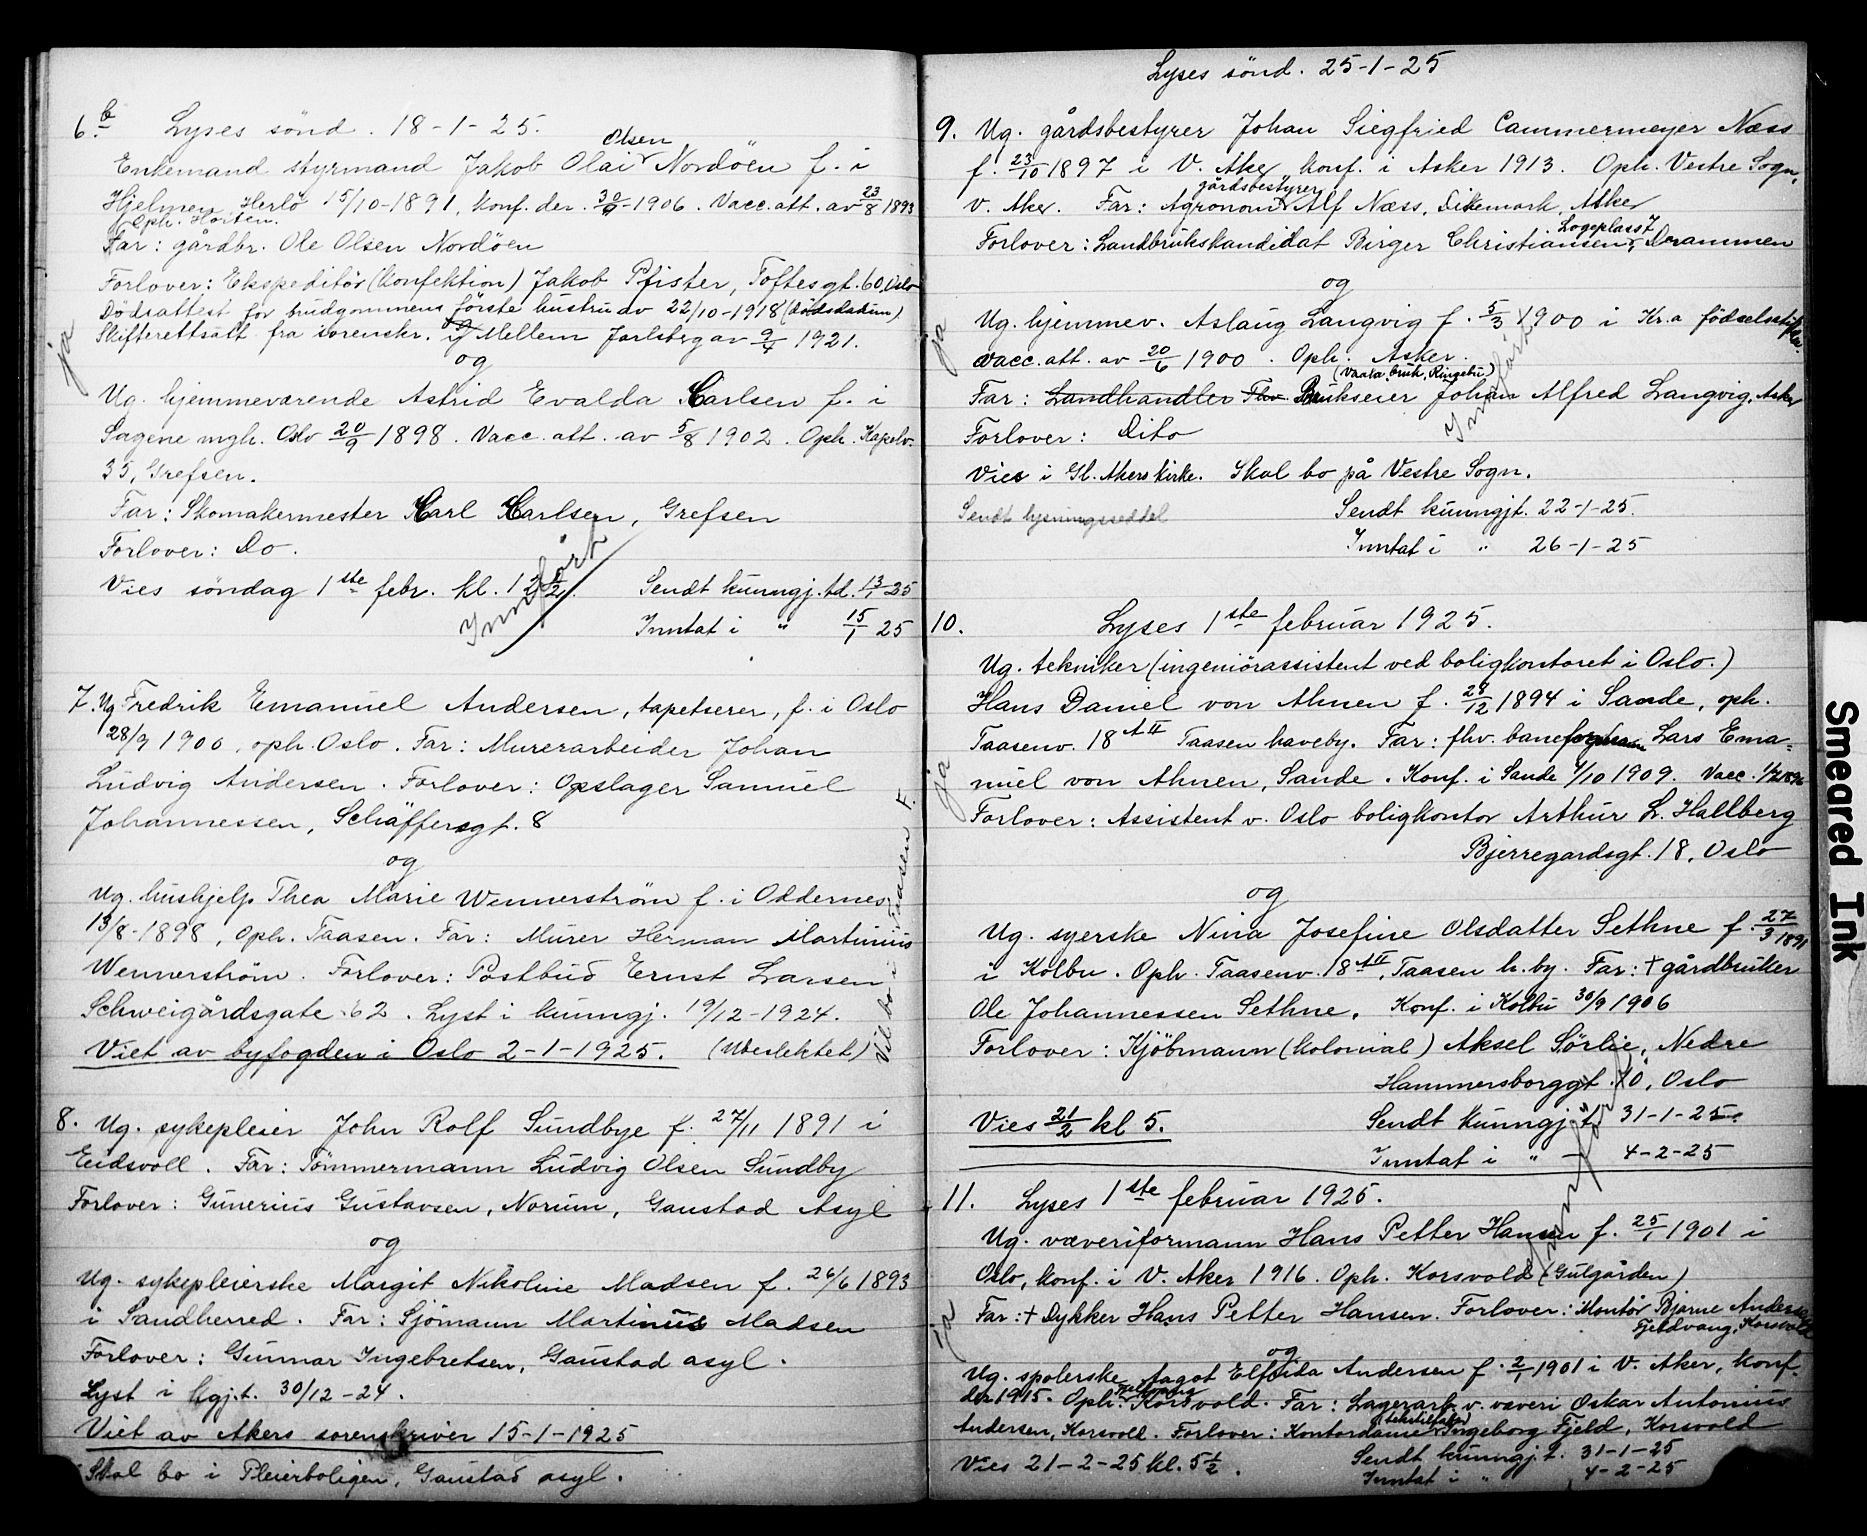 6.b Lyses sönd. 18-1-25.
Enkemand styrmand Jakob Olai Olsen Nordöen f. i
Hjelmen, Herlö 15/10-1891, Konf. der. 30/9-1906. Vacc.att. av 23/8 1893
Oph. Horten.
Far: gårdbr. Ole Olsen Nordöen
Forlover: Ekspeditör (konfektion) Jakob Pfister, Toftesgt. 60, Oslo
Dödsattest for brudgommens förste hustru av 22/10-1918 (dödsdatum)
Skifterettsatt. fra sorenskr. i Mellem Jarlsberg av 9/4 1921.
og
Ug. hjemmeværende Astrid Evalda Carlsen f. i
Sagene mgh. Oslo 20/9 1898. Vacc. att. av 5/8 1902. Oph. Kapelv.
35, Grefsen.
Far: Skomakermester Carl Carlsen, Grefsen
Forlover: Do.
Vies söndag 1ste febr. kl. 12 1/2. Sendt kunngj.td. 13/1 25
Inntat i " 15/1 25
ja
Innfört
7. Ug Fredrik Emanuel Andersen, tapetserer, f. i Oslo
28/9 1900, oph. Oslo. Far: Murerarbeider Johan
Ludvig Andersen. Forlover: Opslager Samuel
Johannessen, Schäffersgt. 8
og
Ug. hushjelp Thea Marie Wennerström f. i Oddernes
13/8-1898, Oph. Taasen. Far: Murer Herman Martinius
Wennerström. Forlover: Postbud Ernst Larsen
Schweigårdsgate 62. Lyst i kunngj. 19/12-1924.
Viet av byfogden i Oslo 2-1-1925. (Ubeslektet)
Vil bo i Taasen F.
8. Ug. sykepleier John Rolf Sundbye f. 27/11 1891 i
Eidsvoll. Far: Tömmermann Ludvig Olsen Sundby
Forlover: Gunerius Gustavsen, Norum, Gaustad Asyl
og
Ug. sykepleierske Margit Nikoline Madsen f. 26/6 1893
i Sandherred. Far: Sjömann Martinius Madsen
Forlover: Gunnar Ingebretsen, Gaustad asyl.
Lyst i kgj.t. 30/12-24.
Viet av Akers sorenskriver 15-1-1925
Skal bo i Pleierboligen, Gaustad asyl.
Lyses sönd. 25-1-25
9. Ug. gårdsbestyrer Johan Siegfried Cammermeyer Næss
f. 23/10 1897 i V. Aker konf. i Asker 1913. Oph. Vestre Sogn,
V. Aker. Far: Agronom gårdsbestyrer Alf Næss, Dikemark, Asker
Forlover: Landbrukskandidat Birger Christiansen, Logeplass 7 Drammen
og
Ug. hjemmev. Aslaug Langvig f. 5/3 1900 i Kr.a
vacc. att. av 20/6 1900. Oph. Asker.
(Vaala bruk, Ringebu)
Far: Landhandler Fhv. Brukseier Johan Alfred Langvig, Asker
Forlover: Dito
Vies i Gl. Akers kirke. Skal bo på Vestre Sogn.
Sendt lysningsseddel Sendt kunngjt. 22-1-25.
Inntat i " 26-1-25
ja
Innfört
10. Lyses 1ste februar 1925.
Ug. tekniker (ingeniörassistent ved boligkontoret i Oslo.)
Hans Daniel von Ahnen f. 28/12 1894 i Sande, oph.
Taasenv. 18 A II Taasen haveby. Far: fhv. baneformann Lars Ema=
nuel von Ahnen, Sande. Konf. i Sande 4/10 1909. Vacc.
Forlover: Assistent v. Oslo boligkontor Arthur L. Hallberg
Bjerregardsgt. 18, Oslo
og
Ug. syerske Nina Josefine Olsdatter Sethne f. 27/3 1891
i Kolbu. Oph. Taasenv. 18 A II, Taasen h.by. Far: + gårdbruker
Ole Johannessen Sethne, Konf. i Kolbu 30/9 1906
Forlover: Kjöbmann (kolonial) Aksel Sörlie, Nedre
Hammersborggt. 10, Oslo
Vies 21/2 kl 5. Sendt kunngj.t. 31-1-25
Inntat i " 4-2-25
ja
Innfört
11. Lyses 1ste februar 1925.
Ug. væveriformann Hans Petter Hansen f. 25/1 1901 i
Oslo, konf. i V. Aker 1916. Oph. Korsvold (Gulgården)
Far: + Dykker Hans Petter Hansen. Forlover: Montör Bjarne Andersen
Fjeldvang, Korsvold
og
Ug. spolerske Dagot Elfrida Andersen f. 2/1 1901 i V. Aker, konf.
der 1915. Oph. Fjellvang Korsvold. Far: Lagerarb. v. væveri Oskar Antonius
Andersen, Korsvoll. Forlover: Kontordame Ingeborg Fjeld, Korsvold
Vies 21-2-25 kl. 5 1/2. Sendt kunngj.t. 31-1-25
Inntat i " 4-2-25
ja
Smeared Ink